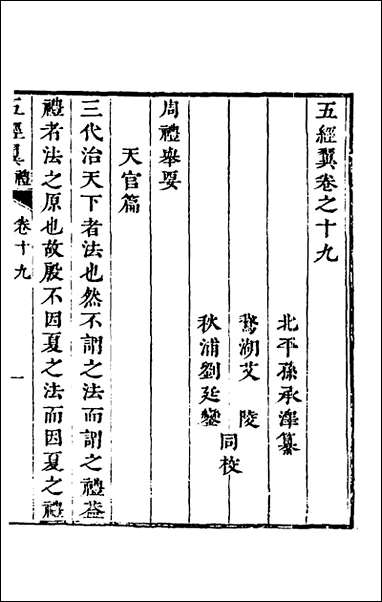 五經翼卷之十九
北平孫承澤纂
鵞湖艾　陵
秋浦劉廷鑾
同校
周禮舉要
天官篇
三代治天下者法也然不謂之法而謂之禮葢
禮者法之原也故殷不因夏之法而因夏之禮
五經翼 禮 卷十九 一